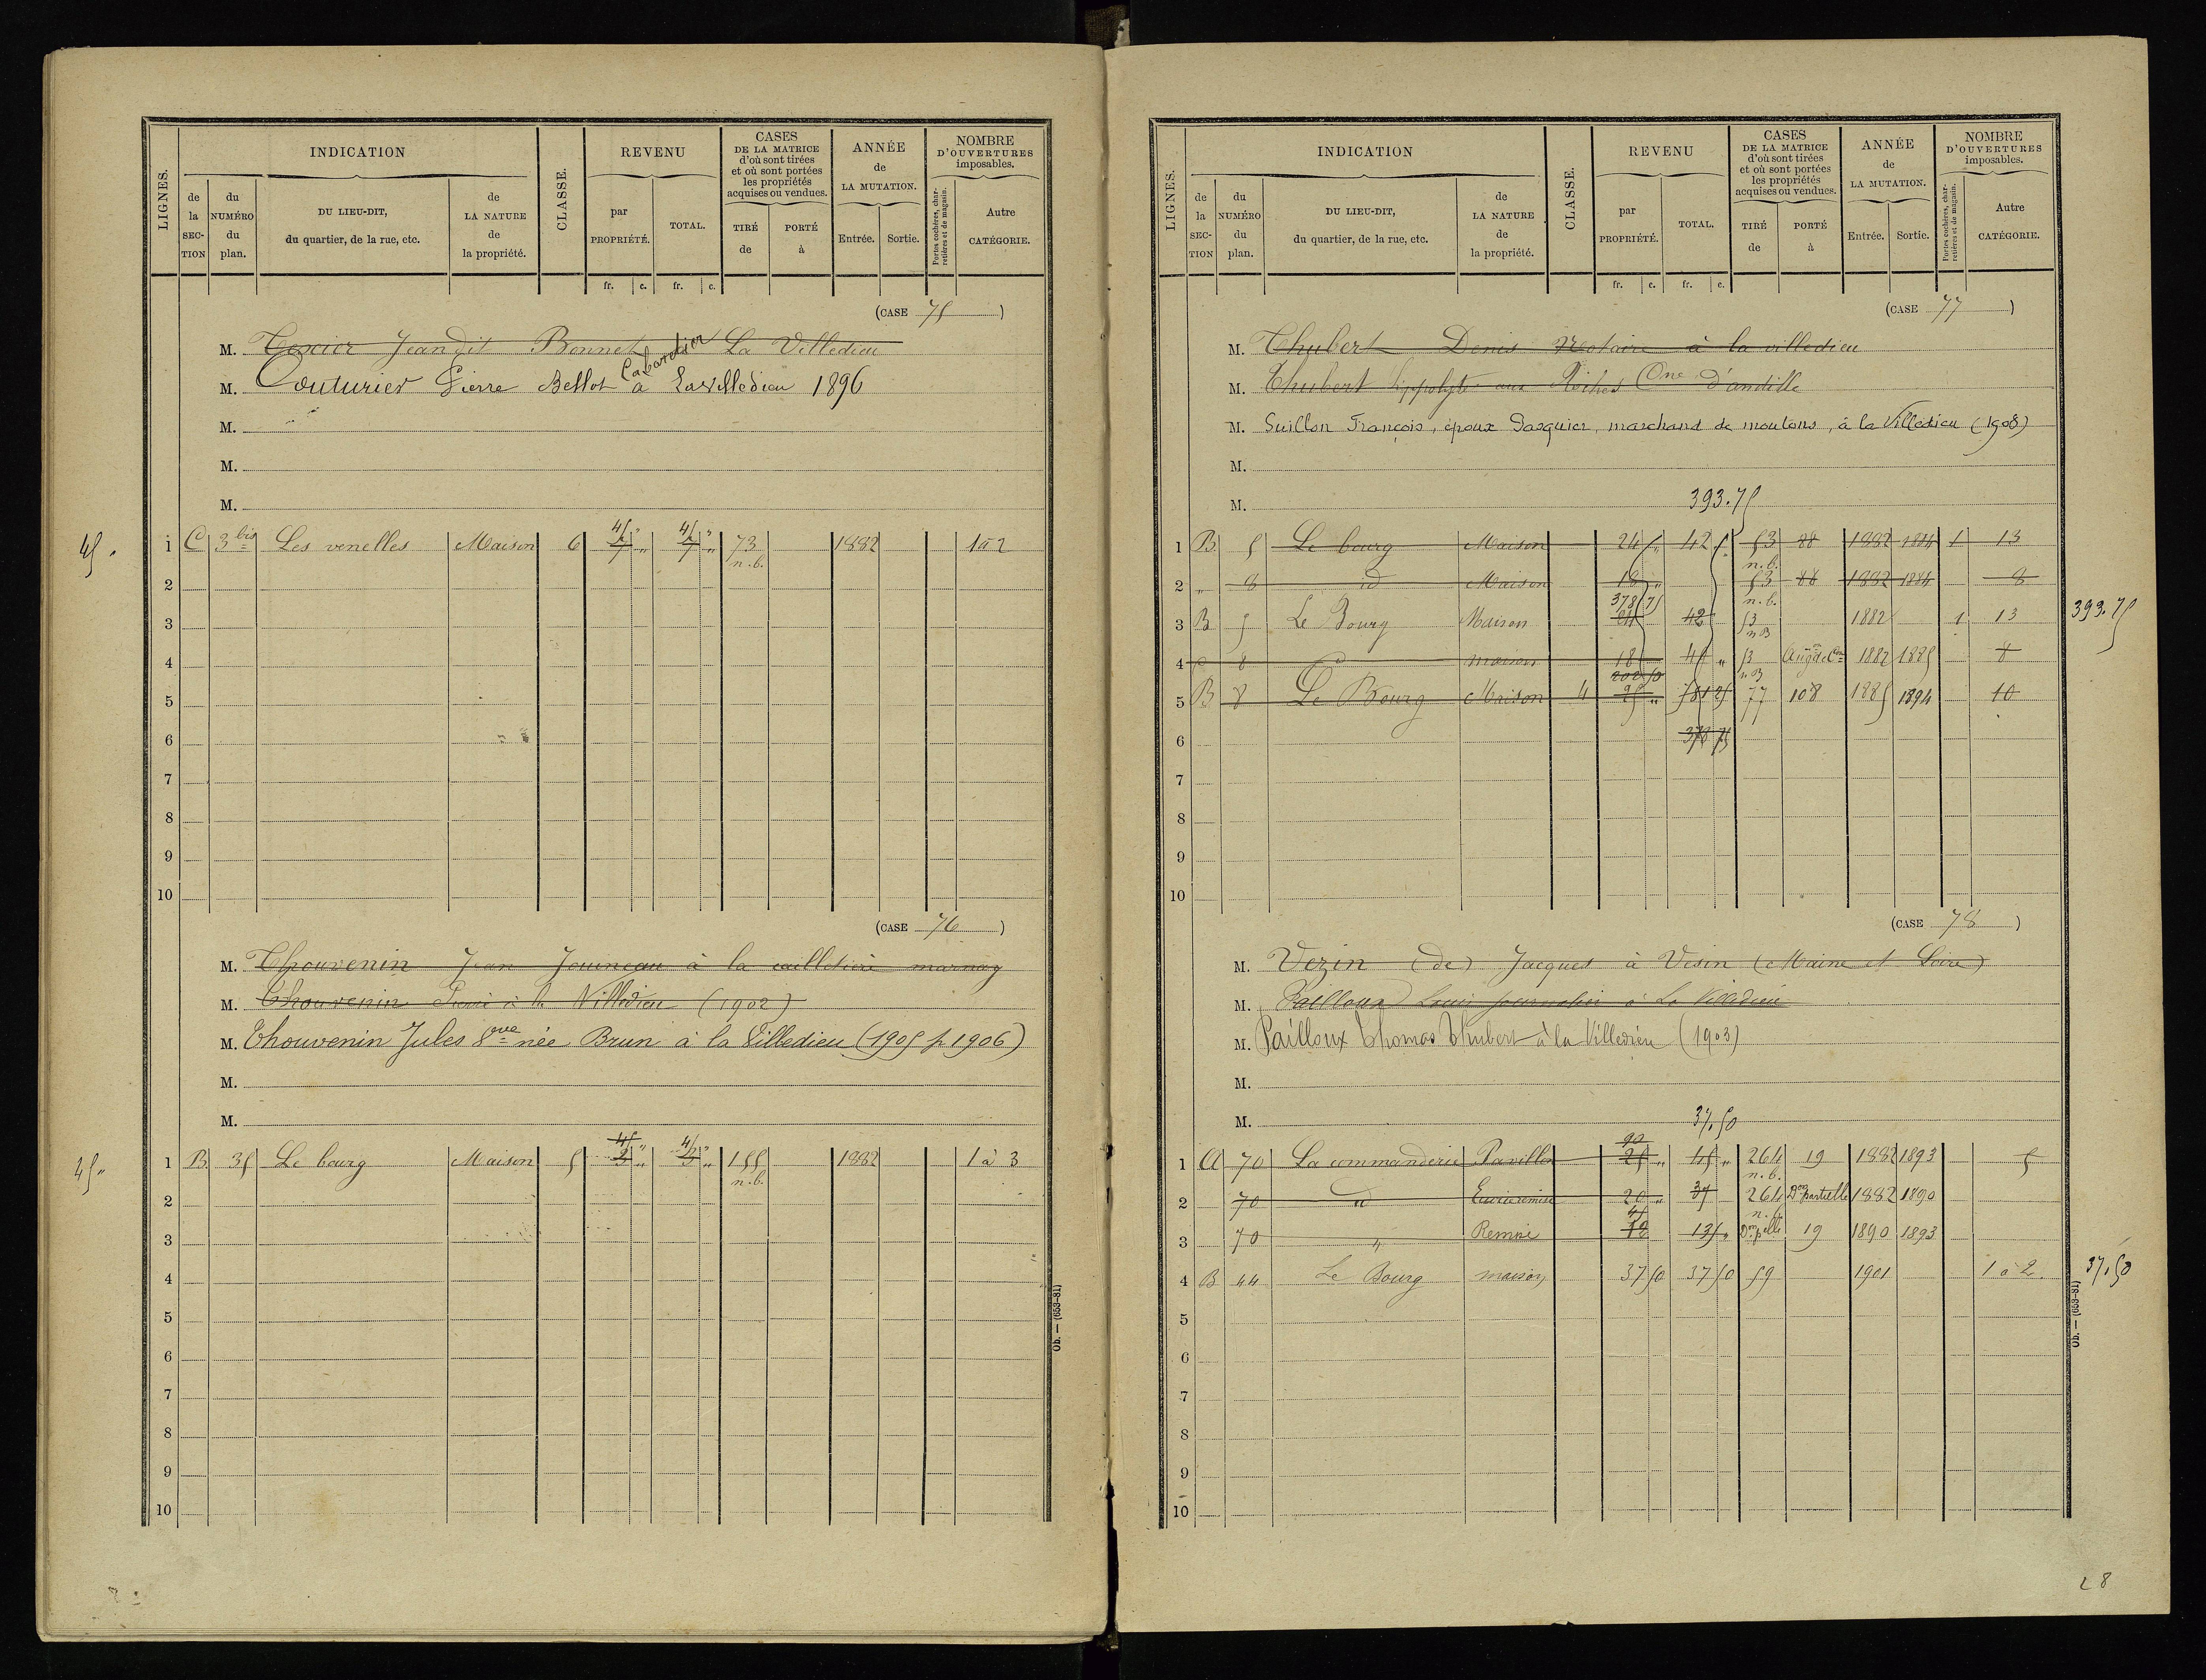 LIGNES. INDICATION CLASSE. REVENU CASES DE LA MATRICE d'où sont tirées et où sont portées les propriétés acquises ou vendues. ANNÉE de LA MUTATION. NOMBRE D'OUVERTURES imposables.
de la SECTION du NUMÉRO du plan. DU LIEU-DIT, du quartier, de la rue, etc. de LA NATURE de la propriété. par PROPRIÉTÉ. TOTAL. TIRÉ de PORTÉ à Entrée. Sortie. Portes cochères, charretières et de magasin. Autre CATÉGORIE.
fr. c. fr. c.
(CASE 75)
M. Texier Jean dit Bonnet La Villedieu
Cabaretier
M. Couturier Pierre Bellot à Lavilledieu 1896
M.
M.
M.
45 " 45 "
45 " 1 C 3 bis Les venelles Maison 6 7 " 7 " 73 n.b. 1882 1 à 2
2
3
4
5
6
7
8
9
10
(CASE 76)
M. Thouvenin Jean Jouineau à la marnay
M. Thouvenin Pierre à la Villedieu (1902)
M. Thouvenin Jules Vve née Brun à la Villedieu (1905 p 1906)
M.
M.
45 " 45 "
45 " 1 B 35 Le bourg Maison 5 3 " 3 " 155 n.b. 1882 1 à 3
2
3
4
5
6
7
8
9
10
Ob. — (653-81)
LIGNES. INDICATION CLASSE. REVENU CASES DE LA MATRICE d'où sont tirées et où sont portées les propriétés acquises ou vendues. ANNÉE de LA MUTATION. NOMBRE D'OUVERTURES imposables.
de la SECTION du NUMÉRO du plan. DU LIEU-DIT, du quartier, de la rue, etc. de LA NATURE de la propriété. par PROPRIÉTÉ. TOTAL. TIRÉ de PORTÉ à Entrée. Sortie. Portes cochères, charretières et de magasin. Autre CATÉGORIE.
fr. c. fr. c.
(CASE 77)
M. Thubert Denis Notaire à la villedieu
M. Thubert hippolyte aux Roches Cne d'andille
M. Guillon François, époux Pasquier, marchand de moutons, à la Villedieu (1908)
M.
M. 393.75
1 B 5 Le bourg Maison 24 42 53 n.b. 88 1882 1884 1 13
2 " 8 id Maison 18 " 53 n.b. 88 1882 1884 8
378 75
3 B 5 Le Bourg Maison 24 42 53 n B 1882 1 13 393.75
4 8 maison 18 " 53 n B Augon de Con 1882 1885 8
202 50
5 B 8 Le Bourg Maison 4 95 " 581 25 77 108 1885 1894 10
6 378 75
7
8
9
10
(CASE 78)
M. Vezin (de) Jacques à Vesin (Maine et Loire)
M. Pailloux Louis journalier à La Villedieu
M. Pailloux Thomas Thubert à la Villedieu (1903)
M.
M. 37.50
90
1 A 70 La commanderie Pavillon 25 " 45 " 264 n.b. 19 1882 1893 5
2 70 id Ecurie remise 20 " 37 264 n.b. Don partielle 1882 1890
45
3 70 " Remise 12 135 " Don pelle 19 1890 1893
4 B 44 Le Bourg maison 37 50 37 50 59 1901 1 à 2. 37.50
5
6
7
8
9
10
Ob. — (653-81)
28